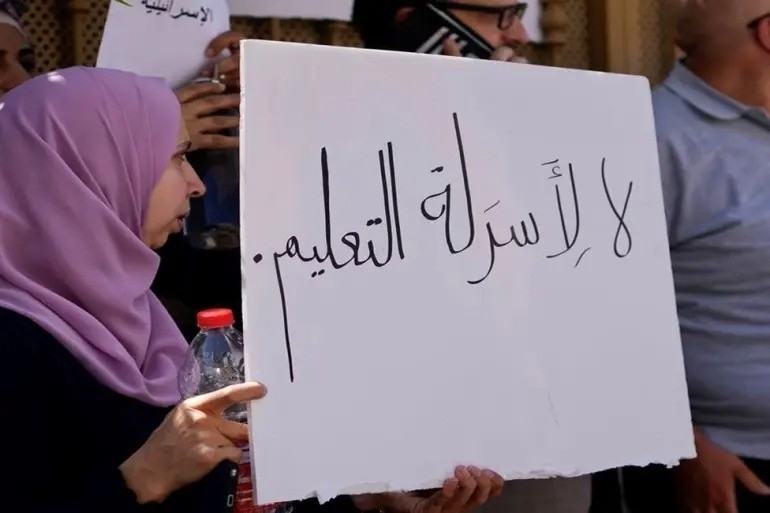 الإسرائيلية
لا لِأَسرَلة التعليم.